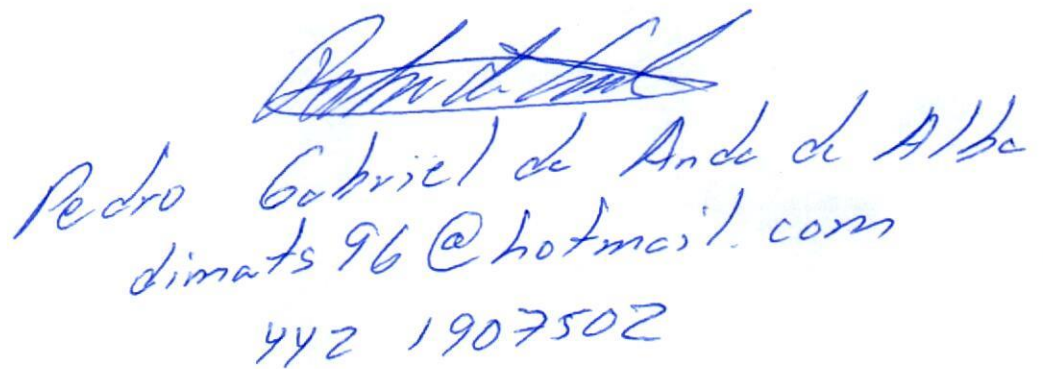 Pedro Gabriel de Anda de Alba
dimats96@hotmail.com
442 1907502